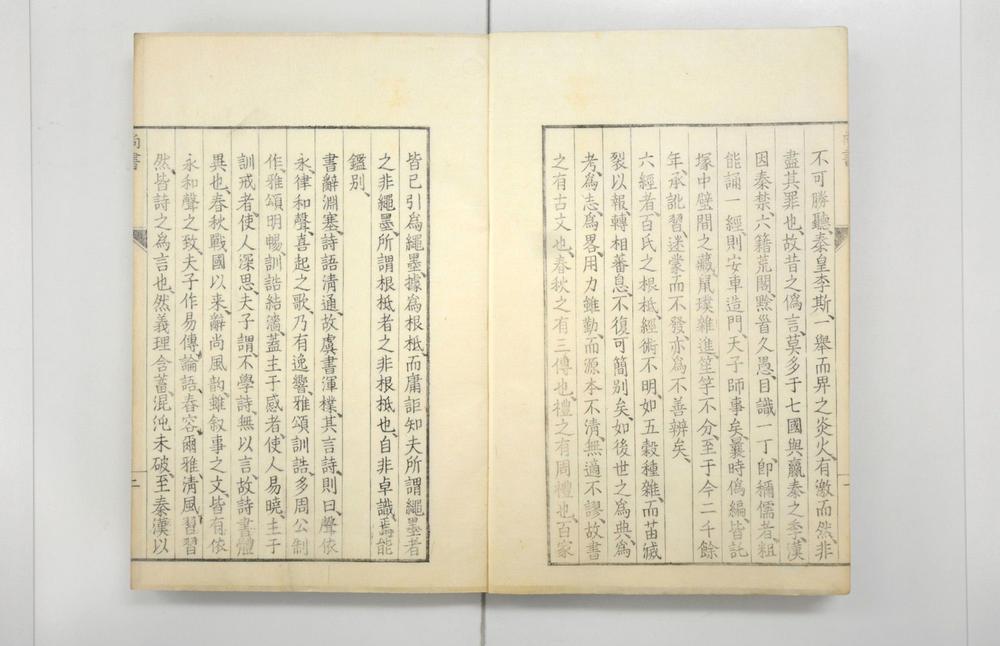 不可勝聽、秦皇李斯、一舉而畀之炎火、有激而然、非
盡其罪也、故昔之僞言、莫多于七國與嬴秦之季、漢
因秦禁、六籍荒閣、黔首久愚、目識一丁、卽稱儒者、粗
能誦一經、則安車造門、天子師事矣、曩時僞編、皆託
塚中壁間之藏、鼠璞雜進、笙竽不分、至于今二千餘
年、承訛習迷、蒙而不發、亦爲不善辨矣、
六經者百氏之根柢、經術不明、如五穀種雜、而苗滅
裂以報、轉相蕃息、不復可簡別矣、如後世之爲典、爲
考、爲志、爲畧、用力雖勤、而源本不清、無適不謬、故書
之有古文也、春秋之有三傳也、禮之有周禮也、百家
皆已引爲繩墨、據爲根柢、而庸詎知夫所謂繩墨者
之非繩墨、所謂根柢者之非根柢也、自非卓識、焉能
鑑別、
書辭淵塞、詩語清通、故虞書渾樸、其言詩則曰、聲依
永、律和聲、喜起之歌、乃有逸響、雅頌訓誥、多周公制
作、雅頌明暢、訓誥結濇、蓋主于感者、使人易曉、主于
訓戒者、使人深思、夫子謂、不學詩、無以言、故詩書體
異也、春秋戰國以来、辭尚風韵、雖叙事之文、皆有依
永和聲之致、夫子作易傳論語、舂容爾雅、清風習習
然、皆詩之爲言也、然義理含蓄、混沌未破、至秦漢以
尚書
二
尚書
一